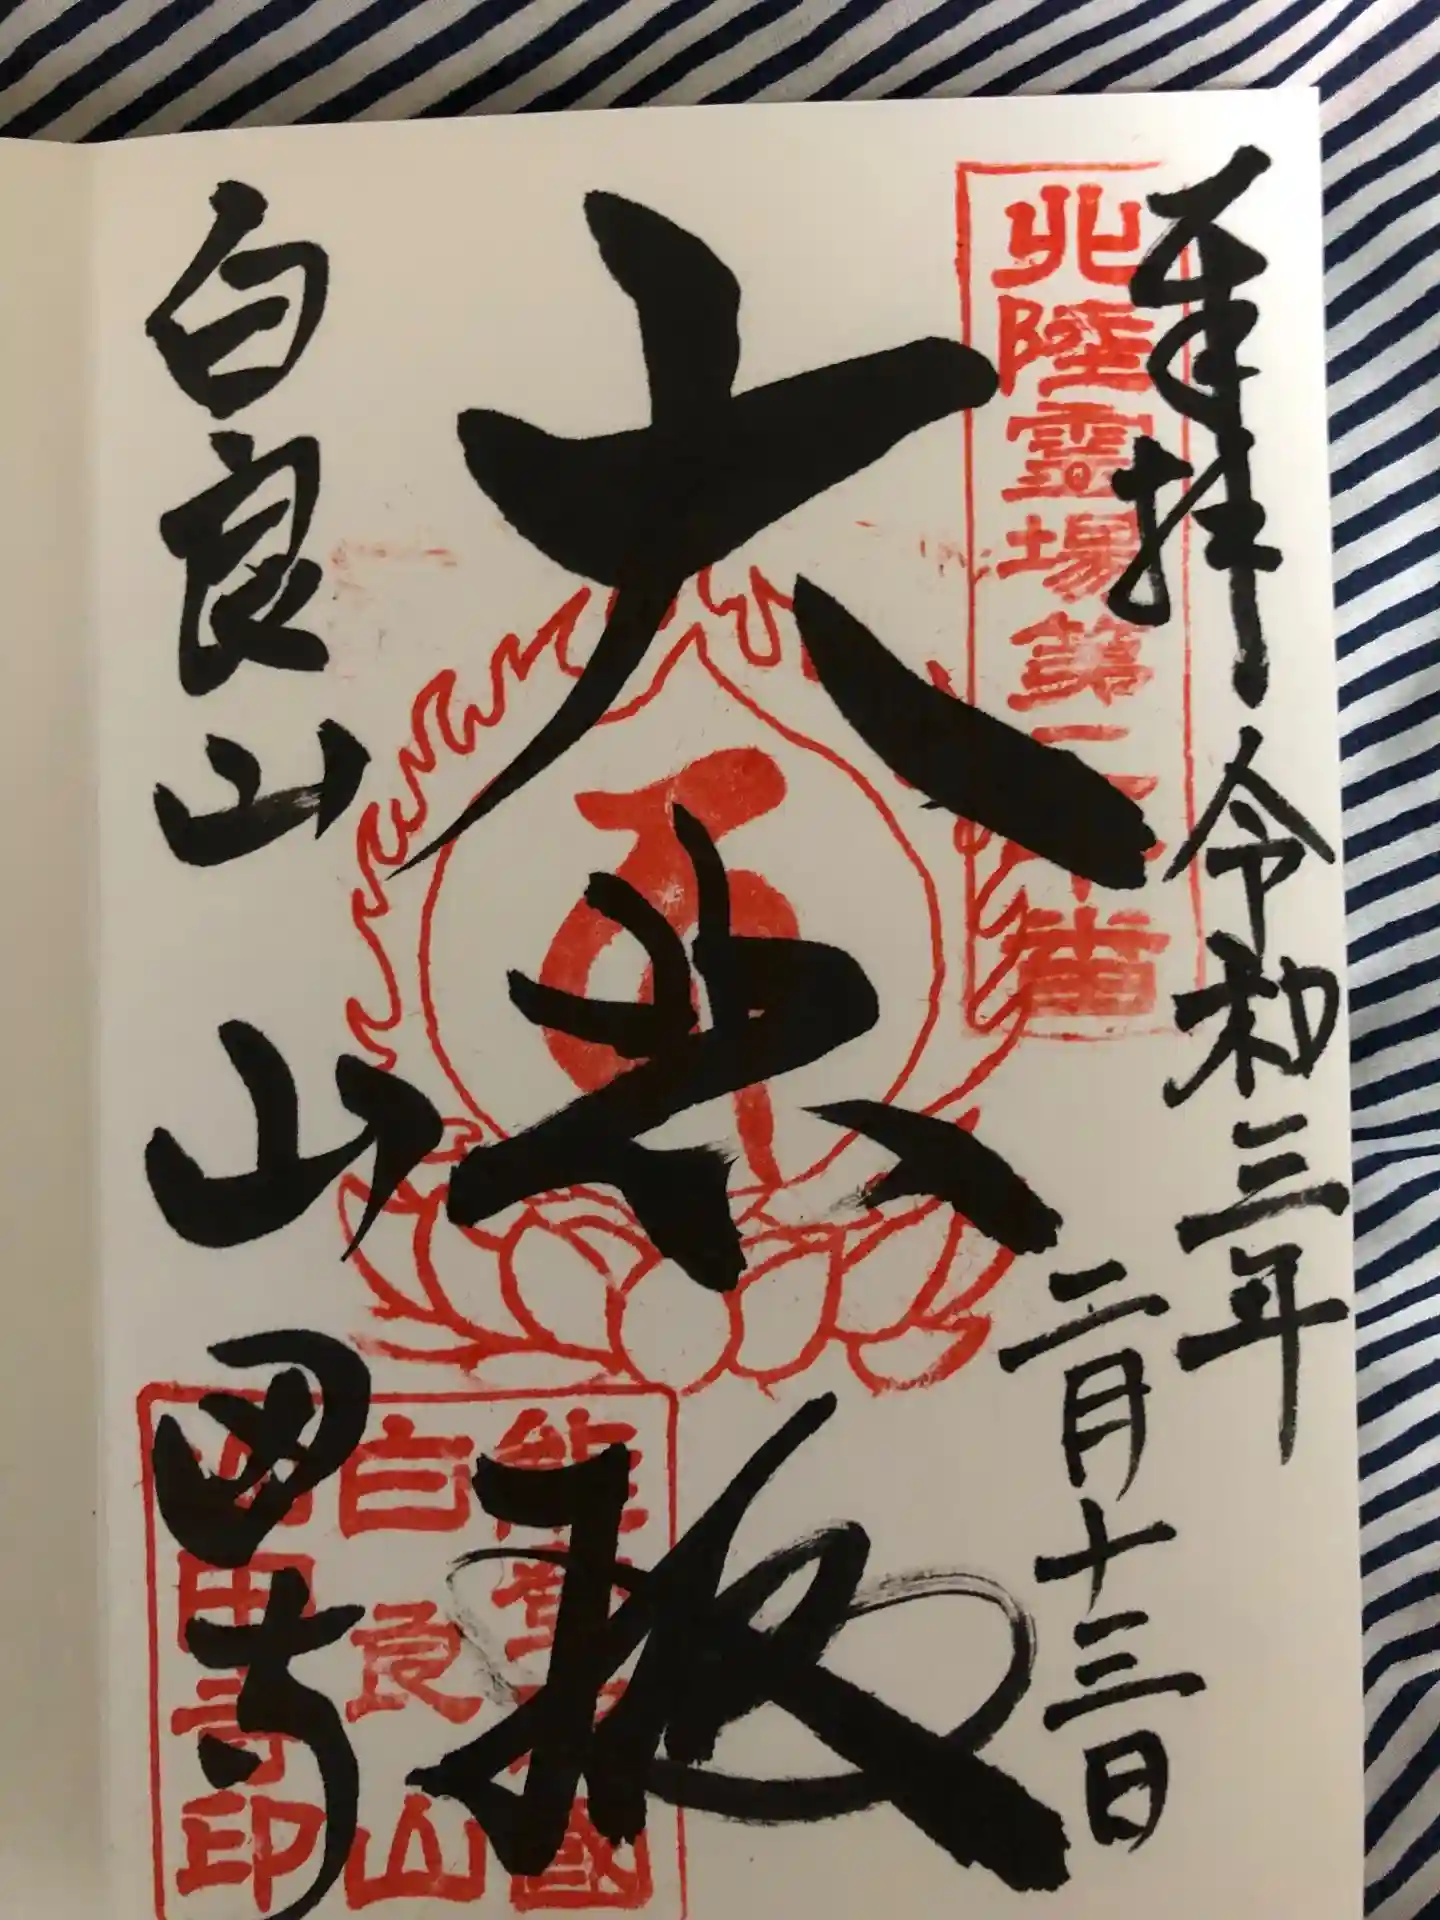 奉拝
令和三年
二月十三日
北陸霊場第
大悲殿
白良山
山田寺
能登國
白良山
山田寺印